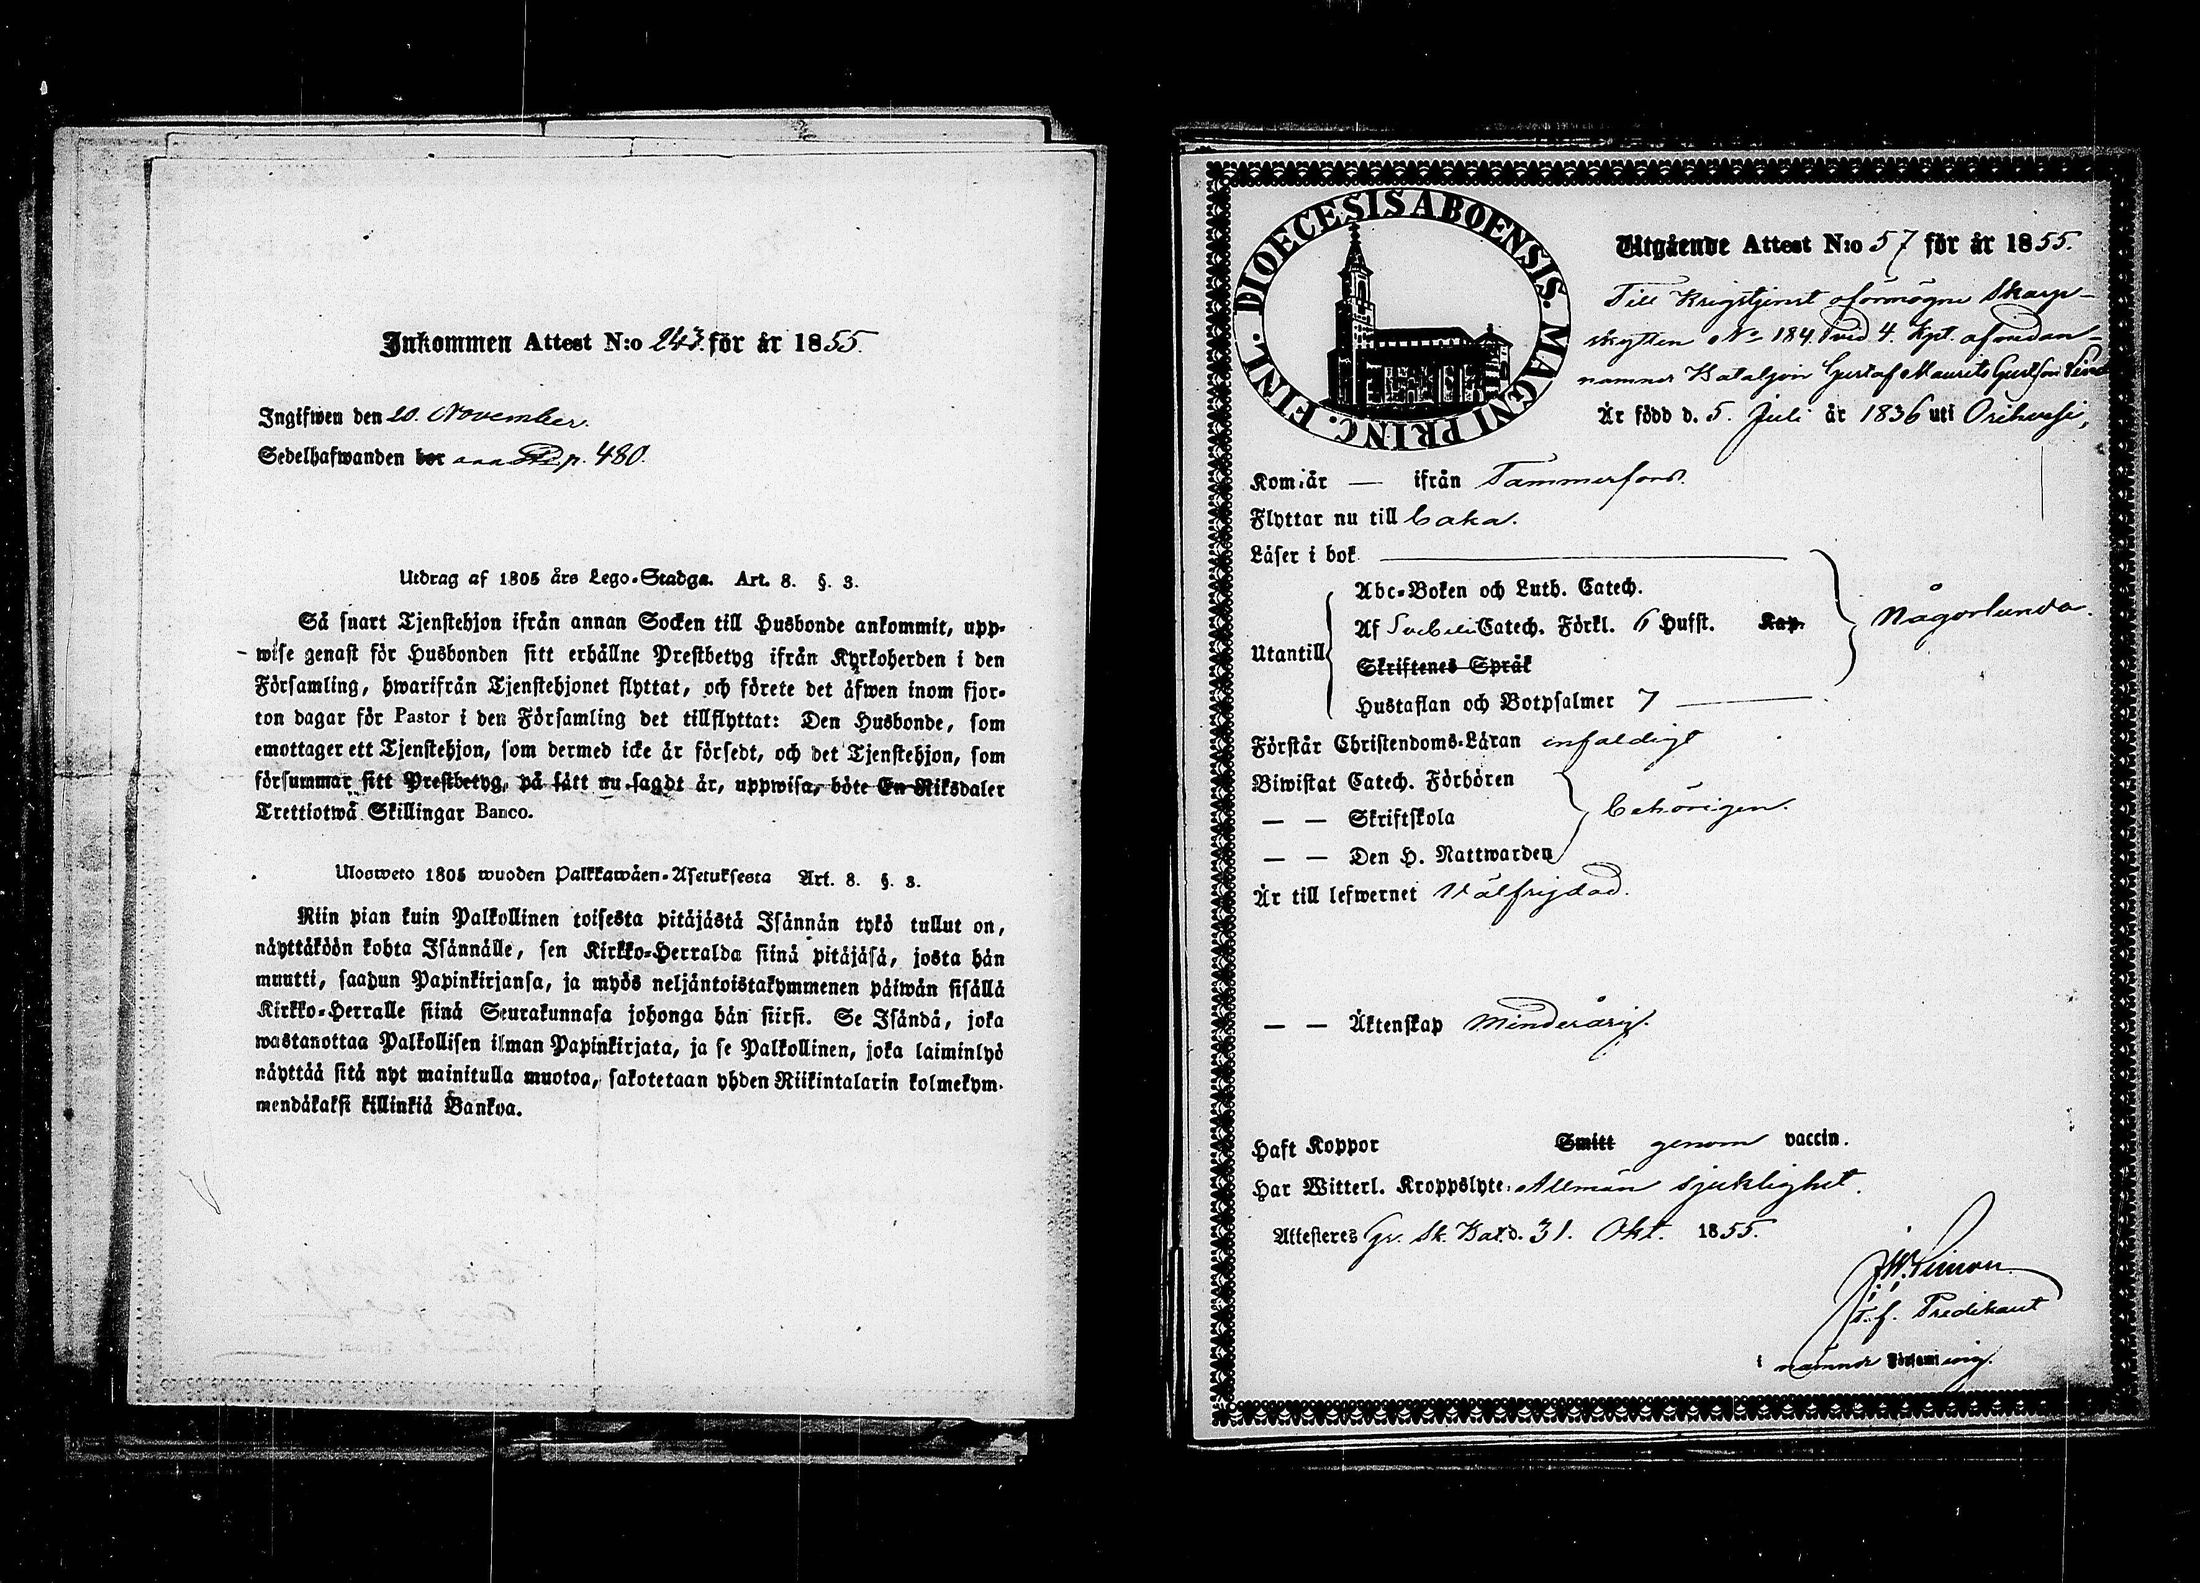 Inkommen Attest N:o 243. för år 1855.
Ingifwen den 20. November.
Sedelhafwanden bor p. 480.
Utdrag af 1805 års Lego-Stadga. Art. 8. §. 3.
Så snart Tjenstehjon ifrån annan Socken till Husbonde ankommit, upp-
wise genast för Husbonden sitt erhållne Prestbetyg ifrån Kyrkoherden i den
Församling, hwarifrån Tjenstehjonet flyttat, och förete det äfwen inom fjor-
ton dagar för Pastor i den Församling det tillflyttat: Den Husbonde, som
emottager ett Tjenstehjon, som dermed icke är försedt, och det Tjenstehjon, som
försummar sitt Prestbetyg, på sätt nu sagdt är, uppwisa, böte En Riksdaler
Trettiotwå Skillingar Banco.
Ulosweto 1805 wuoden Palkkawäen-Asetuksesta Art. 8. §. 3.
Niin pian kuin Palkollinen toisesta pitäjästä Isännän tykö tullut on,
näyttäköön kohta Isännälle, sen Kirkko-Herralda siinä pitäjäsä, josta hän
muutti, saadun Papinkirjansa, ja myös neljäntoistakymmenen päiwän sisällä
Kirkko-Herralle siinä Seurakunnasa johonga hän siirsi. Se Isändä, joka
wastanottaa Palkollisen ilman Papinkirjata, ja se Palkollinen, joka laiminlyö
näyttää sitä nyt mainitulla muotoa, sakotetaan yhden Riikintalarin kolmekym-
mendäkaksi killinkiä Bankoa.
FINL. DIOECESIS ABOENSIS. MAGNI PRINC.
Utgående Attest N:o 57 för år 1855.
Till Krigstjenst oförmögne Skarp-
skytten No 184 vid 4. Kpt. af nedan-
namner Bataljon Gustaf Maurits Gustfson
Är född d. 5. Juli år 1836 uti Orihvesi,
Kom år — ifrån Tammerfors.
Flyttar nu till Caka.
Läser i bok
Abc-Boken och Luth. Catech.
Af Svebelii Catech. Förkl. 6 Hufst. Kap. Någorlunda.
Utantill
Skriftenes Språk
Hustaflan och Botpsalmer 7
Förstår Christendoms-Läran enfaldigt
Biwistat Catech. Förhören
— — Skriftskola behörigen.
— — Den H. Nattwarden
Är till lefwernet Välfrejdad.
— — Äktenskap Minderårig.
Haft Koppor Smitt genom vaccin.
Har Witterl. Kroppslyte: Allmän sjuklighet.
Attesteres Gr. Sk. Bat. d. 31. Okt. 1855.
J.W. Simon
T. f. Predikant
i nämnde Församling.